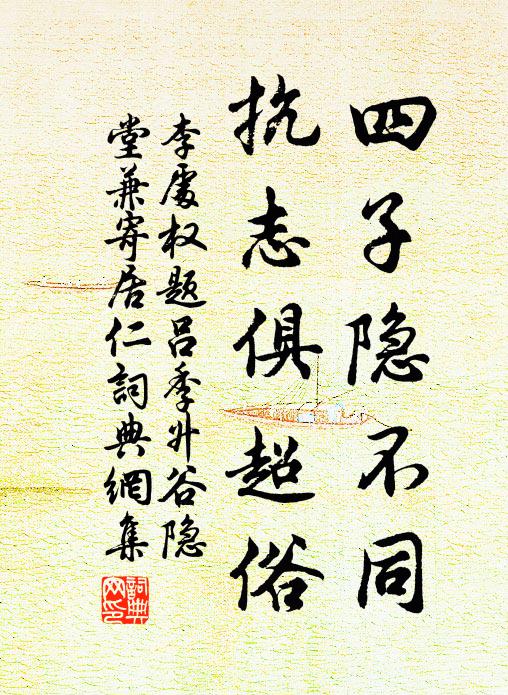 四子隐不同
抗志俱超俗
李處权题吕季升谷隐
堂兼寄居仁詞典網集
詞典
网印